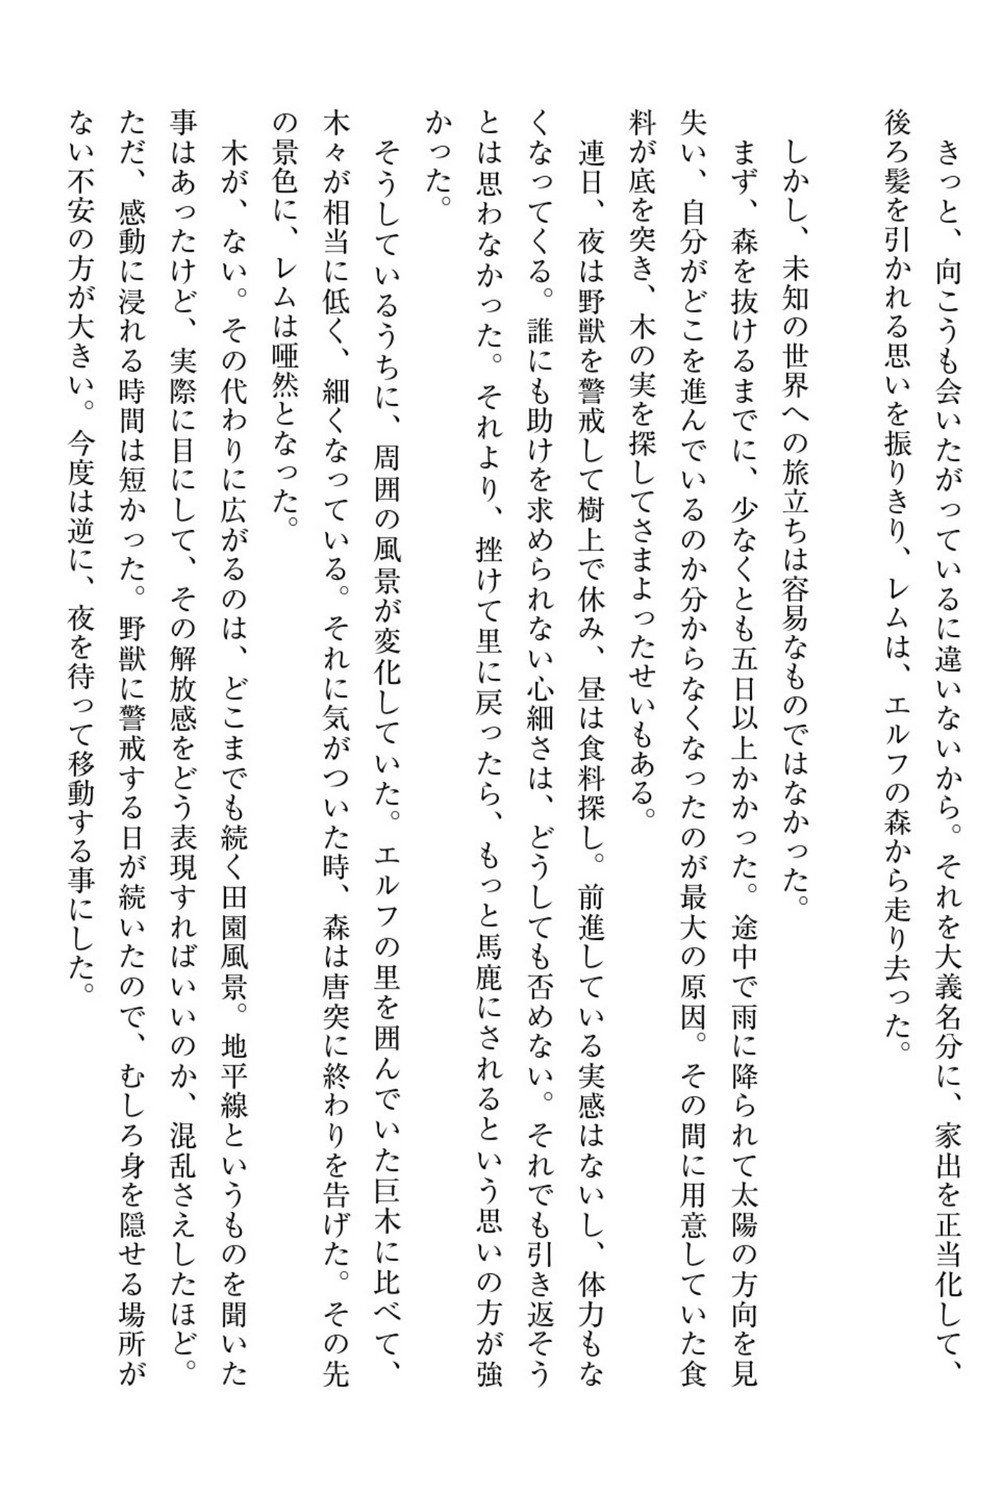 きっと、向こうも会いたがっているに違いないから。それを大義名分に、家出を正当化して、
後ろ髪を引かれる思いを振りきり、レムは、エルフの森から走り去った。
しかし、未知の世界への旅立ちは容易なものではなかった。
まず、森を抜けるまでに、少なくとも五日以上かかった。途中で雨に降られて太陽の方向を見
失い、自分がどこを進んでいるのか分からなくなったのが最大の原因。その間に用意していた食
料が底を突き、木の実を探してさまよったせいもある。
連日、夜は野獣を警戒して樹上で休み、昼は食料探し。前進している実感はないし、体力もな
くなってくる。誰にも助けを求められない心細さは、どうしても否めない。それでも引き返そう
とは思わなかった。それより、挫けて里に戻ったら、もっと馬鹿にされるという思いの方が強
かった。
そうしているうちに、周囲の風景が変化していた。エルフの里を囲んでいた巨木に比べて、
木々が相当に低く、細くなっている。それに気がついた時、森は唐突に終わりを告げた。その先
の景色に、レムは唖然となった。
木が、ない。その代わりに広がるのは、どこまでも続く田園風景。地平線というものを聞いた
事はあったけど、実際に目にして、その解放感をどう表現すればいいのか、混乱さえしたほど。
ただ、感動に浸れる時間は短かった。野獣に警戒する日が続いたので、むしろ身を隠せる場所が
ない不安の方が大きい。今度は逆に、夜を待って移動する事にした。